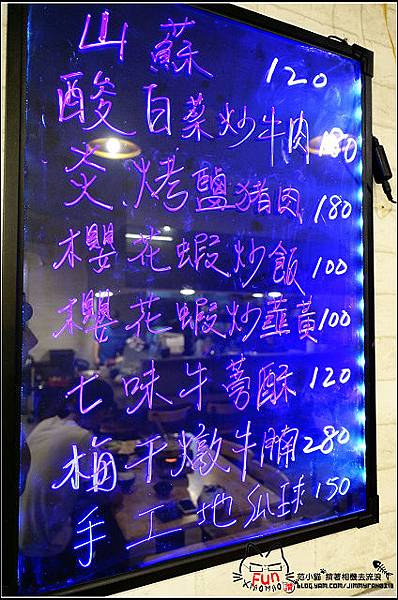 山蘇 120
酸白菜炒牛肉 180
炎烤鹽豬肉 180
櫻花蝦炒飯 100
櫻花蝦炒韮黃 100
七味牛蒡酥 120
梅干燉牛腩 280
手工地瓜球 150
FUN
范小貓*揹著相機去流浪
BLOG.YAM.COM/JIMMYFAN0213